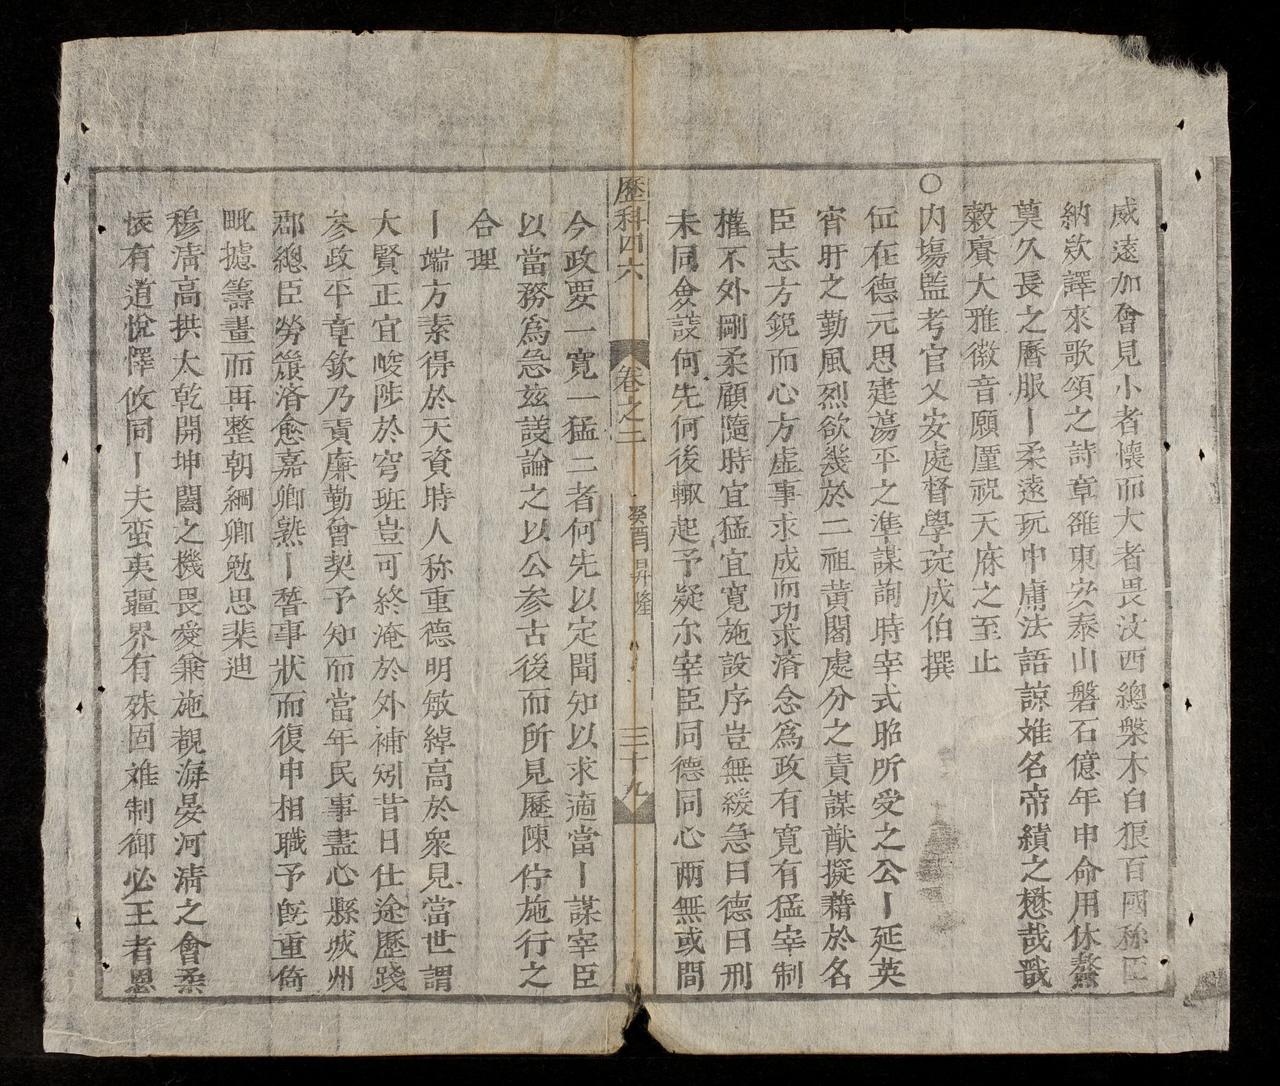 威遠加曾見小者懷而大者畏汝西總槃木白狼百國称臣
納欵譯來歌頌之詩章雒東安泰山磐石億年申命用休鰲
奠久長之曆服丨柔遠玩中庸法語諒难名帝績之懋哉戩
穀賡大雅徽音願厪祝天庥之至止
○内塲監考官乂安處督學琔成伯撰
位在德元思建蕩平之準謀詢時宰式昭所受之公丨延英
宵旰之勤風烈欲幾於二祖黄閣處分之責謀猷擬藉於名
臣志方銳而心方虚事求成而功求済念爲政有寛有猛宰制
權不外剛柔顧隨時宜猛宜寛施設序豈無緩急曰德曰刑
未同僉議何先何後輙起予疑尔宰臣同德同心兩無或間
歷科四六 卷之二 癸酉 景隆 三十九
今政要一寛一猛二者何先以定聞知以求適當丨謀宰臣
以當務爲急兹議論之以公参古後而所見歷陳佇施行之
合理
丨端方素得於天資時人称重德明敏綽高於衆見當世謂
大賢正宜峻陟於穹班豈可終淹於外補矧昔日仕途歷踐
参政平章欽乃責廉勤曾契予知而當年民事盡心縣城州
郡總臣勞簶済愈嘉卿熟丨誓事狀而復申相職予旣重倚
毗攄籌畫而再整朝綱卿勉思棐迪
穆清高拱太乾開坤闔之機畏愛兼施覩海晏河淸之會柔
恢有道悅懌攸同丨夫蛮夷疆界有殊固难制御必王者恩